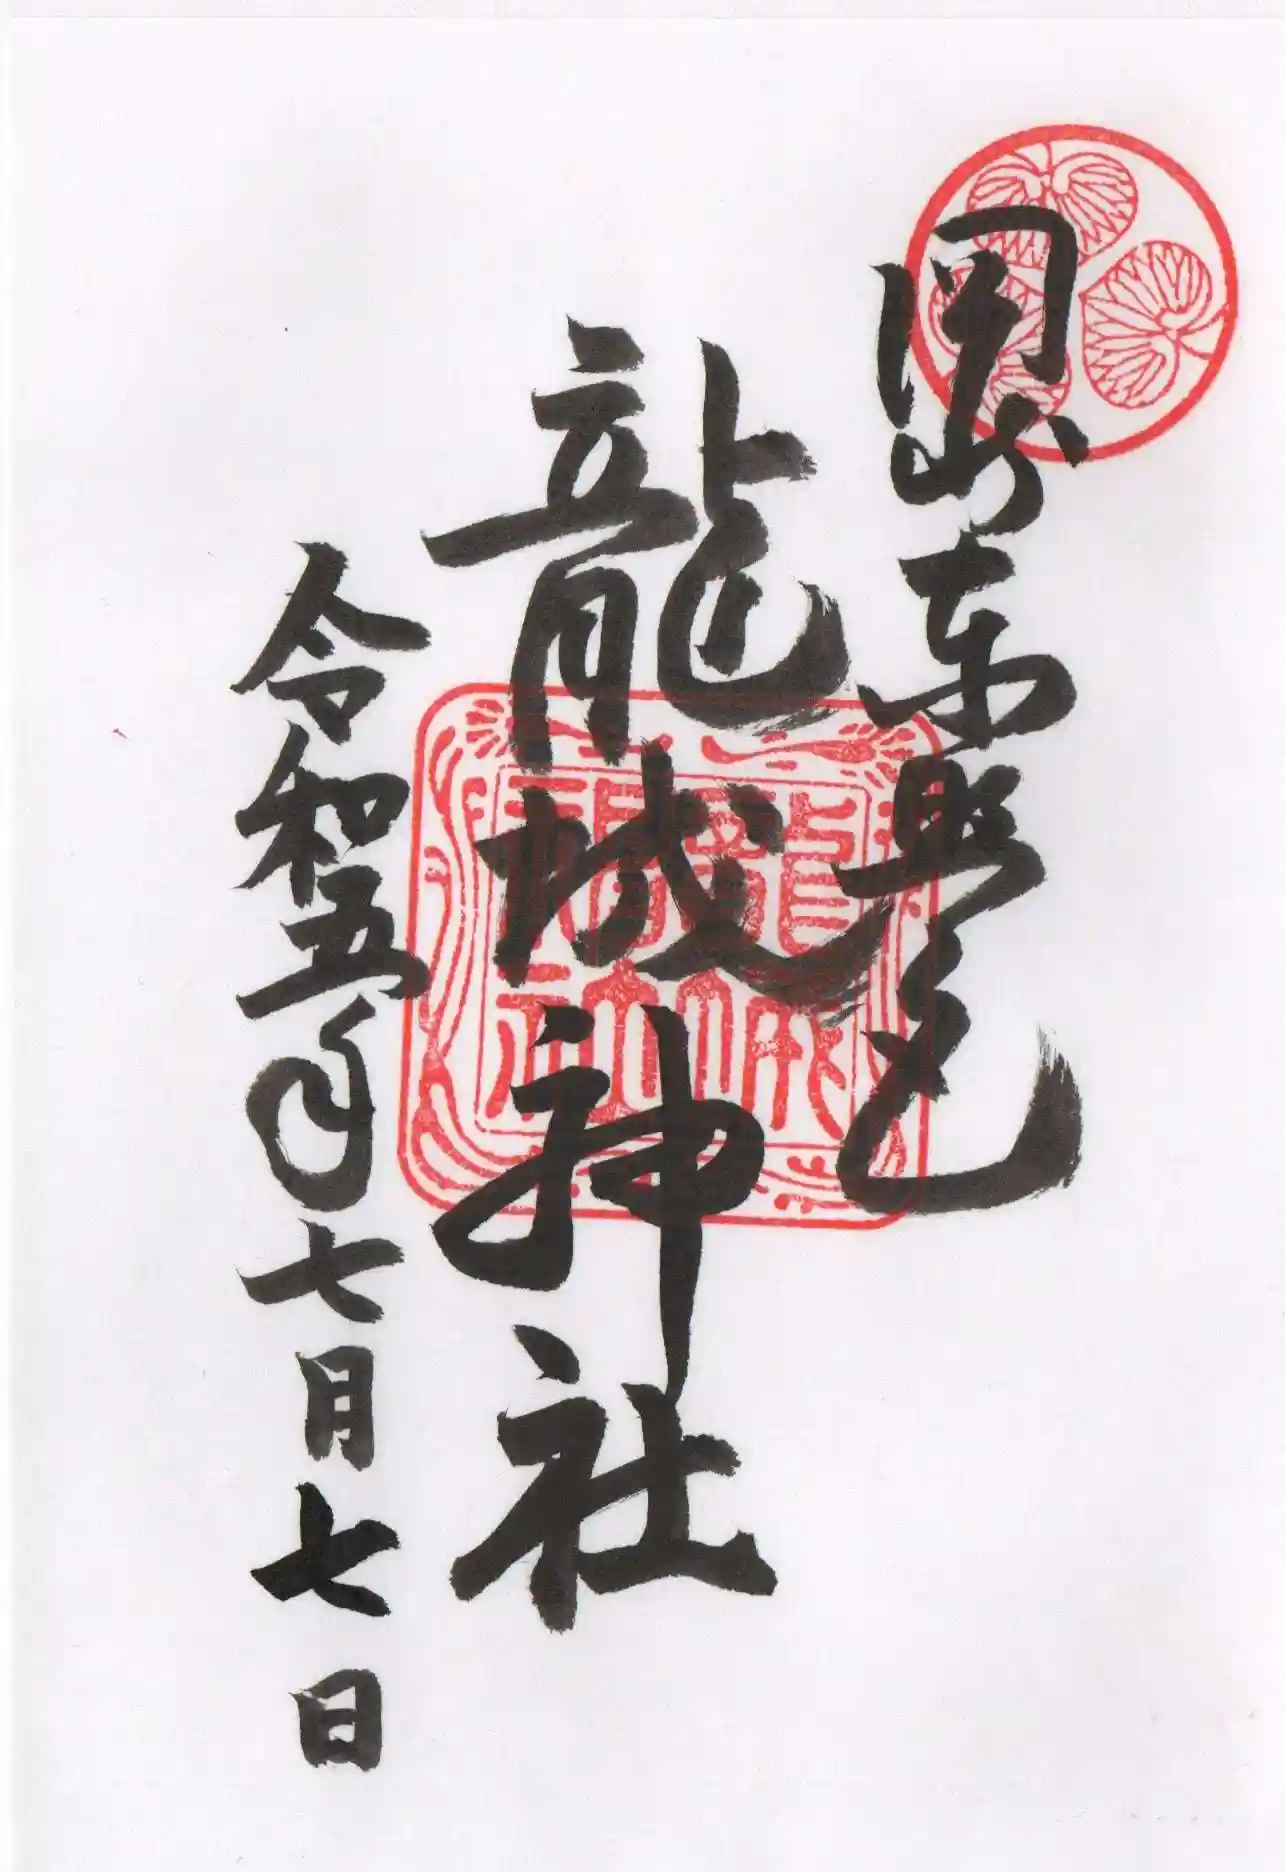 岡崎東照宮
龍城神社
令和五年七月七日